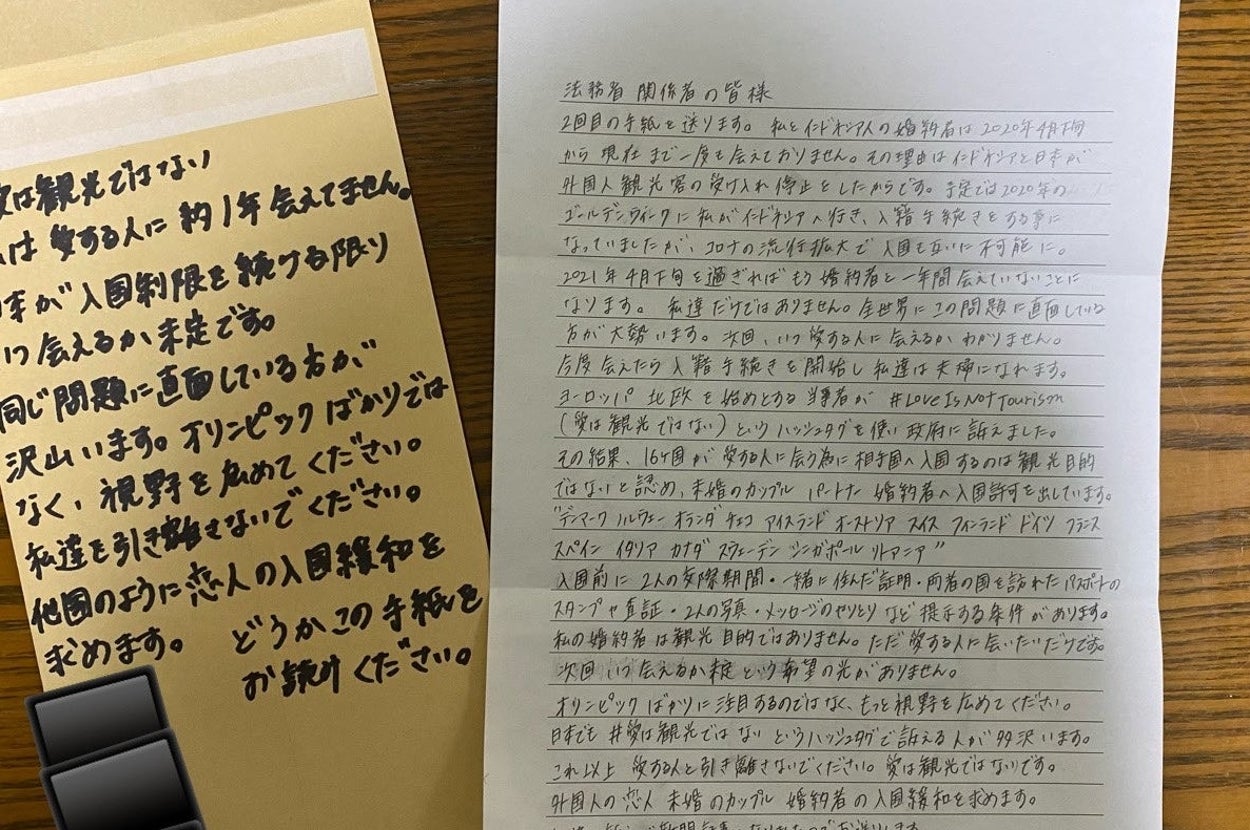 愛は観光ではない
は 愛する人に 約1年 会えてません。
本が 入国制限を 続ける限り
つ 会えるか 未定です。
同じ 問題に 直面している 方が
沢山 います。オリンピック ばかりでは
なく、視野を 広めて ください。
私達を 引き離さないで ください。
他国のように 恋人の 入国緩和を
求めます。 どうか この 手紙を
お読み ください。
法務省 関係者の 皆様
2回目の手紙を 送ります。 私とインドネシア人の 婚約者は 2020年4月下旬
から 現在 まで 一度も 会えて おりません。その理由は インドネシアと 日本が
外国人 観光 客の 受け入れ 停止と したからです。予定では 2020年の
ゴールデンウィークに 私が インドネシアへ 行き、入籍 手続きを する事に
なっていましたが、コロナの 流行拡大で 入国も 互いに 不可能に。
2021年 4月下旬 を 過ぎれば もう 婚約者と 一年間 会えていないことに
なります。 私達 だけでは ありません。全世界に この 問題 に 直面している
方が 大勢 います。 次回、いつ 愛する人に 会えるか わかりません。
今度 会えたら 入籍 手続きを 開始し 私達は 夫婦に なれます。
ヨーロッパ 北欧 を 始めとする 当事者が #LoveIsNotTourism
(愛は 観光 ではない) という ハッシュタグを 使い 政府に 訴えました。
その 結果、16ヶ国が 愛する人に 会う 為に 相手国へ 入国 するのは 観光目的
ではないと 認め、未婚のカップル パートナー 婚約者へ 入国許可 を 出しています。
"デンマーク ノルウェー オランダ チェコ アイスランド オーストリア スイス フィンランド ドイツ フランス
スペイン イタリア カナダ スウェーデン シンガポール リトアニア"
入国前に 2人の 交際期間・一緒に 住んだ 証明・両者の 国を 訪れた パスポートの
スタンプや 査証・2人の 写真・メッセージのやりとり など 提示する 条件 が あります。
私の 婚約者 は 観光 目的では ありません。ただ 愛する人に 会いたい だけです。
次回 いつ 会えるか 未定 という 希望 の 光が ありません。
オリンピック ばかりに 注目するのではなく、もっと 視野を 広めて ください。
日本でも #愛は 観光では ない という ハッシュタグで 訴える 人が 多沢 います。
これ以上 愛する人と 引き 離さないで ください。愛は 観光 ではないです。
外国人の 恋人 未婚 のカップル 婚約者 の 入国緩和を 求めます。